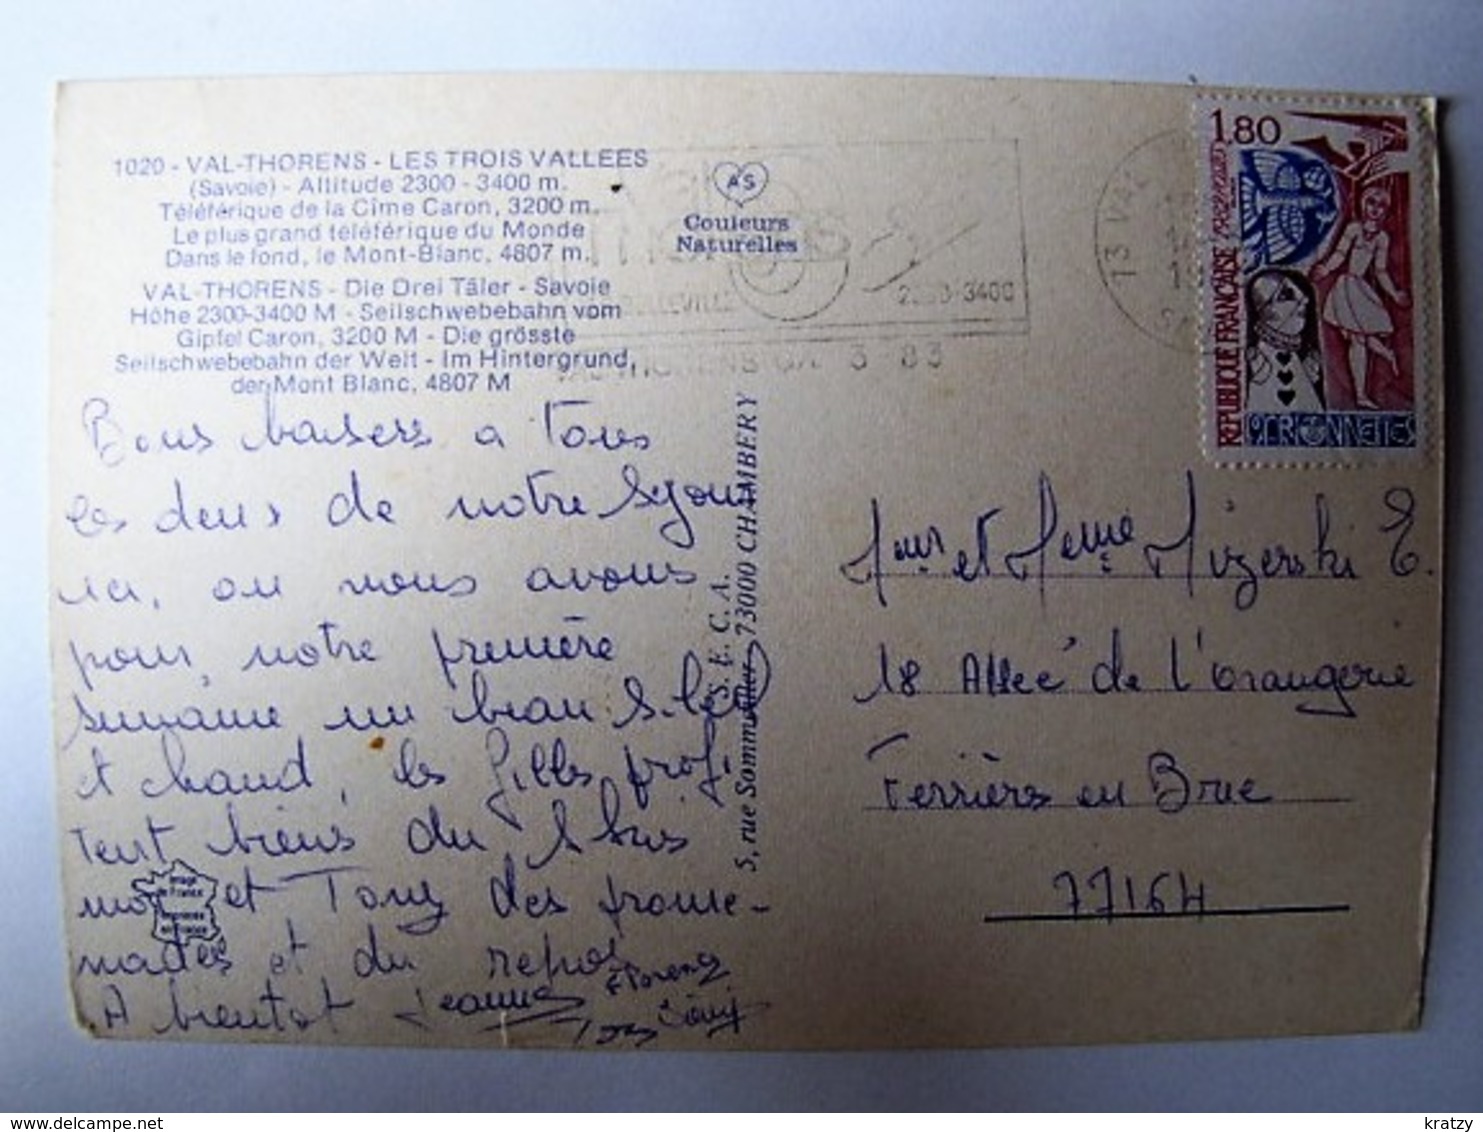 1020 - VAL-THORENS - LES TROIS VALLEES
(Savoie) - Altitude 2300 - 3400 m.
Téléférique de la Cîme Caron, 3200 m.
Le plus grand téléférique du Monde
Dans le fond, le Mont-Blanc, 4807 m.
VAL-THORENS - Die Drei Täler - Savoie
Höhe 2300-3400 M - Seilschwebebahn vom
Gipfel Caron, 3200 M - Die grösste
Seilschwebebahn der Welt - Im Hintergrund,
der Mont Blanc, 4807 M
AS
Couleurs
Naturelles
BELLEVILLE
2300-3400
VAL THORENS 3 - 83
73 VAL
1,80
REPUBLIQUE FRANÇAISE
MARIONNETTES
Bons baisers a tous
les deux de notre séjour
ici, ou nous avons
pour notre première
semaine un beau soleil
et chaud, les filles profi
tent biens du skis
moi et Tony des prome-
nades et du repos
A bientot Jeanne Florence
Tony
Image
de France
Imprimée
en France
S. E. C. A.
5, rue Sommeiller 73000 CHAMBERY
Mour et Meme Mizerski E.
18 Allée de l'orangerie
Ferrières en Brie
77164
delcampe.net
kratzy